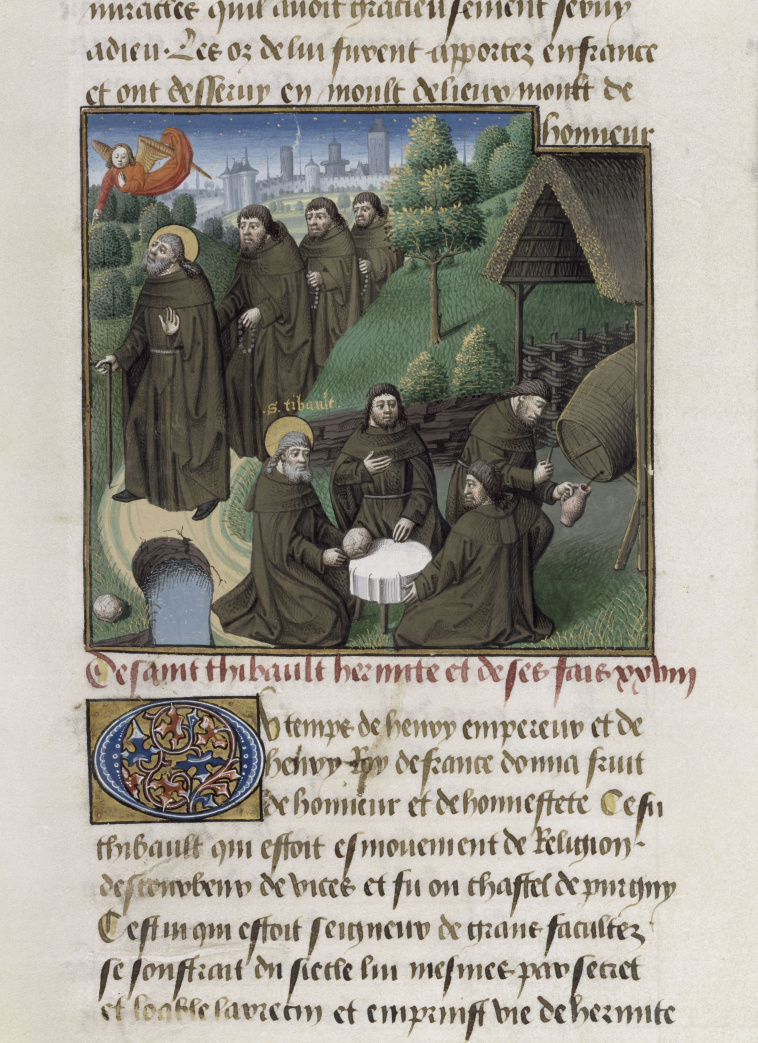 miracles quil avoit gracieusement servy
a dieu. Les oz de lui furent apportez en france
et ont desservy en moult de lieux moult de
honneur
.S. tibault.
De saint thibault hermite et de ses fais xxviii
Ou temps de henry empereur et de
henry Roy de france donna fruit
de honneur et de honnestete Cestu
thibault qui estoit esmouvement de Religion.
destourbeur de vices et fu ou chastel de
Cestui qui estoit seigneur de grans facultez
se soustrait du siecle lui mesmes par secret
et et emprinst vie de hermite